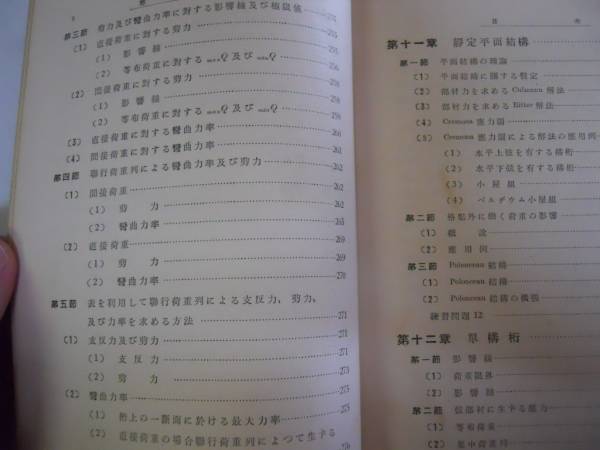 第三節 剪力及び彎曲力率に對する影響線及び極限値
(1) 直接荷重に對する剪力
(1) 影響線
(2) 等布荷重に對する maxQ 及び minQ
(2) 間接荷重に對する剪力
(1) 影響線
(2) 等布荷重に對する maxQ 及び minQ
(3) 直接荷重に對する彎曲力率 260
(4) 間接荷重に對する彎曲力率 261
第四節 聯行荷重列による彎曲力率及び剪力
(1) 間接荷重 262
(1) 剪力 262
(2) 彎曲力率 265
(2) 直接荷重 269
(1) 剪力 269
(2) 彎曲力率 270
第五節 表を利用して聯行荷重列による支反力、剪力、
及び力率を求める方法 271
(1) 支反力及び剪力 271
(1) 支反力 271
(2) 剪力 273
(2) 彎曲力率 275
(1) 桁上の一斷面に於ける最大力率 275
(2) 直接荷重の場合聯行荷重列によつて生ずる
第十一章 靜定平面結構
第一節 平面結構の理論
(1) 平面結構に關する假定
(2) 部材力を求める Culmann 解法
(3) 部材力を求める Ritter 解法
(4) Cremona 應力圖
(5) Cremona 應力圖による解法の應用例
(1) 水平上弦を有する構桁
(2) 水平下弦を有する構桁
(3) 小屋組
(4) ベルダウム小屋組
第二節 格點外に働く荷重の影響
(1) 概說
(2) 應用例
第三節 Polonceau 結構
(1) Polonceau 結構
(2) Polonceau 結構の擴張
練習問題 12
第十二章 單構桁
第一節 影響線
(1) 荷重限界
(2) 影響線
第二節
(1) 等布荷重
(2) 集中荷重列